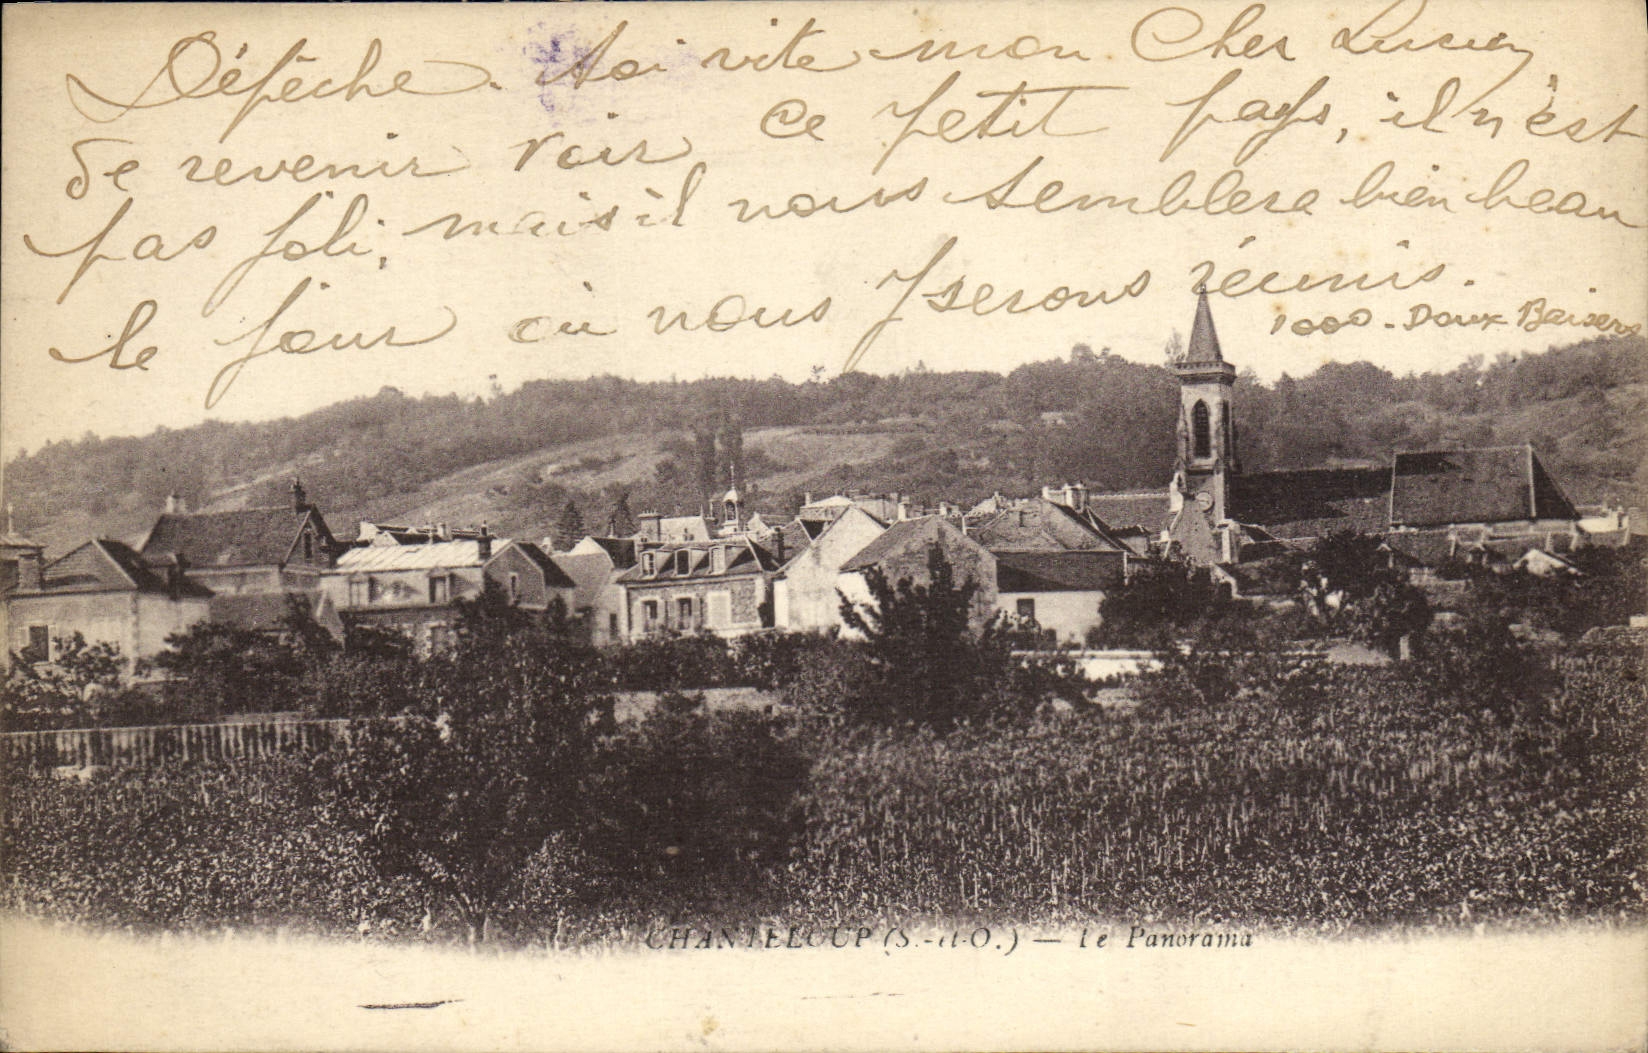 Dépêche. toi vite mon Cher Lucien
de revenir voir ce petit pays, il n'est
pas joli, mais il nous semblera bien beau
le jour où nous y serons réunis.
1000 - Doux Baisers
CHANTELOUP (S.-et-O.) — Le Panorama